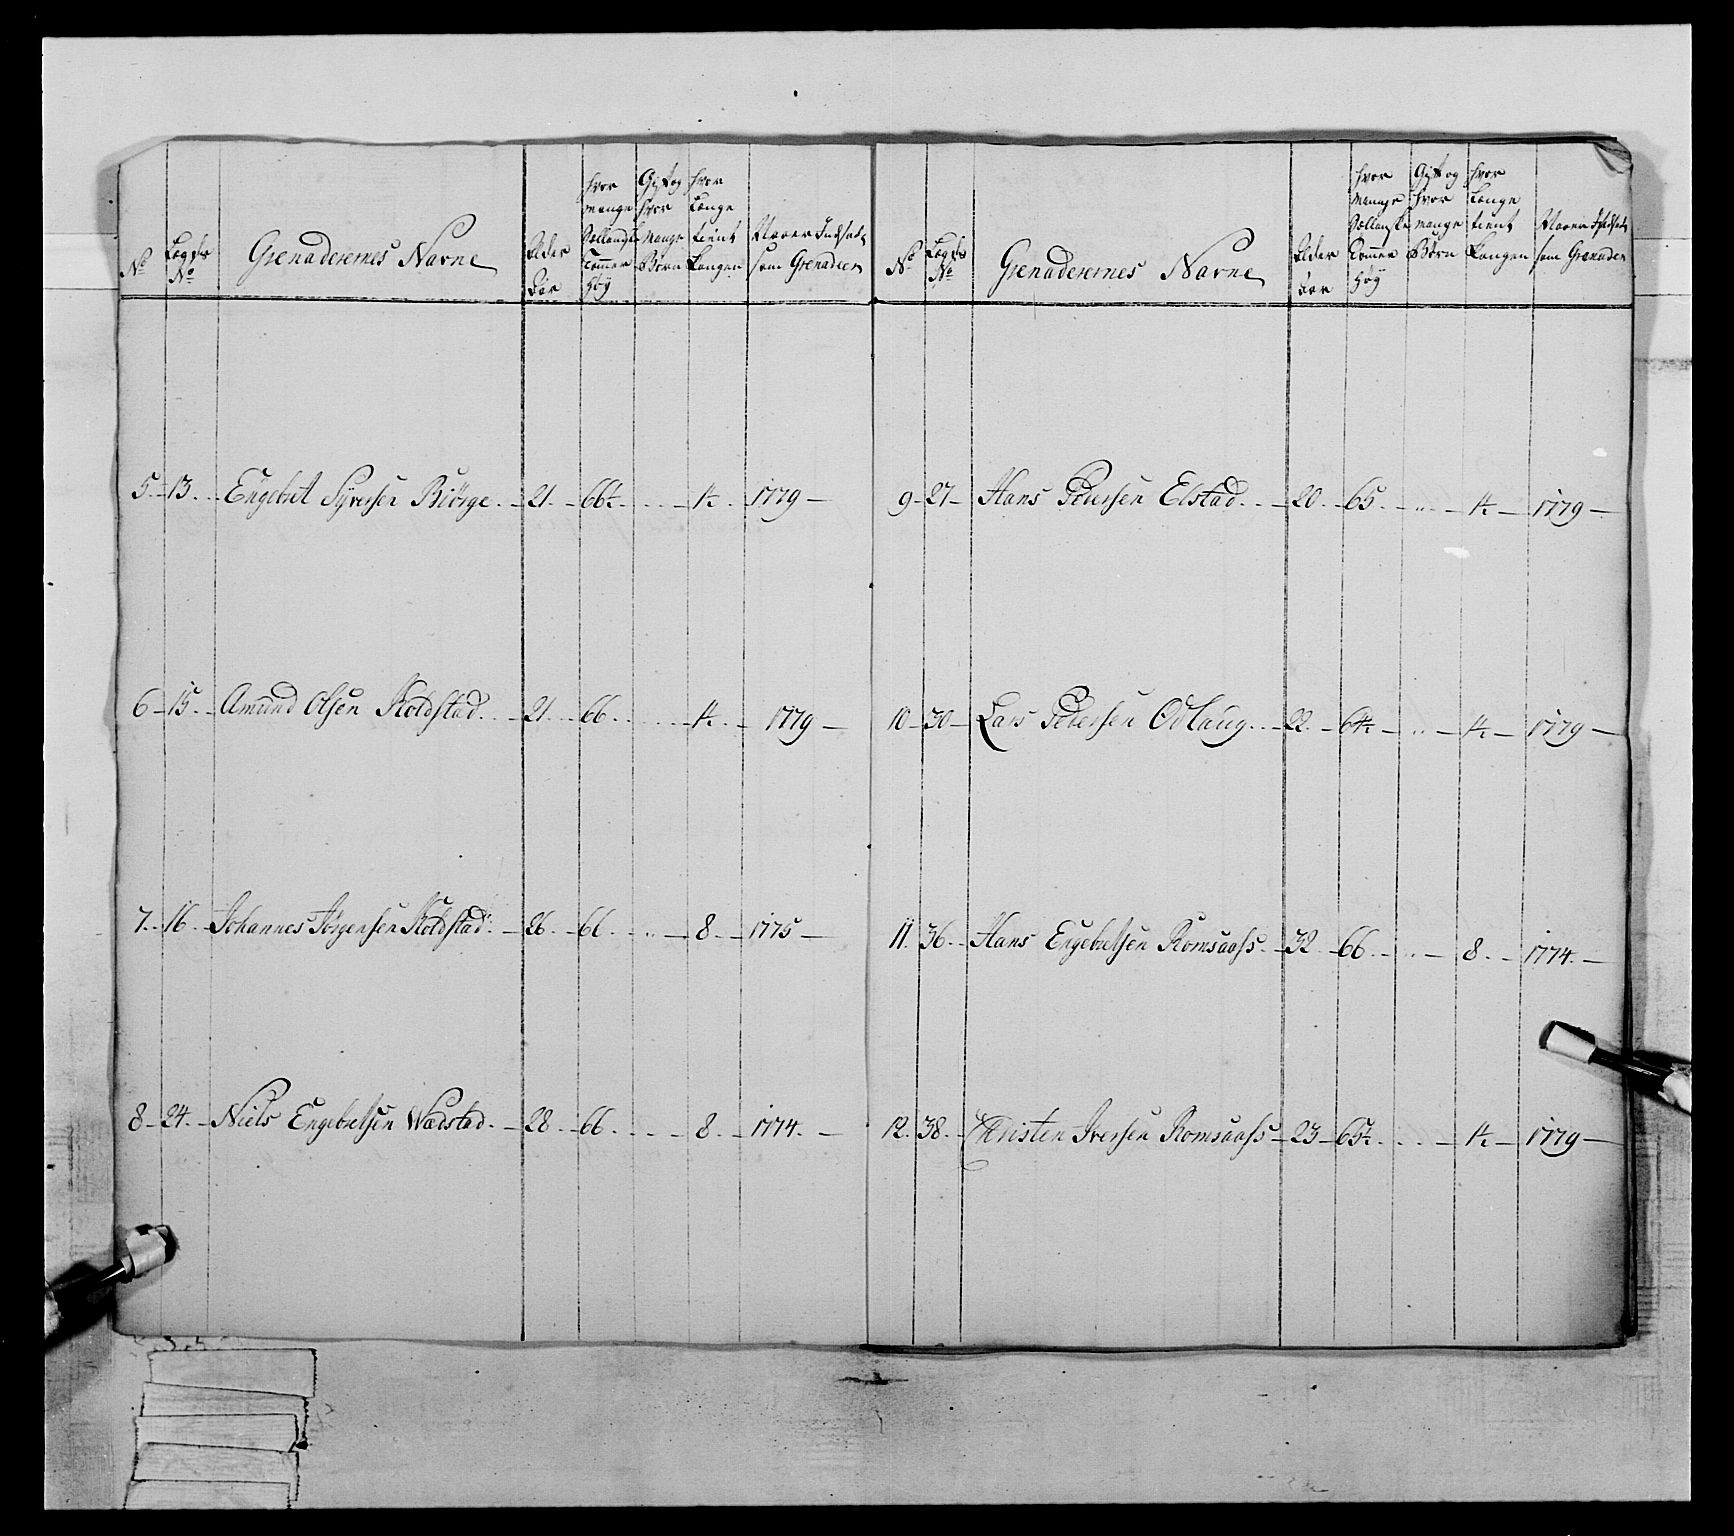 No
Lægds No
Grenaderernes Navne
Alder Aar
hvor mange Sællandske Tommer høy
Gift og hvor mange Børn
hvor Længe tient Kongen
Naar Indsadt som Grenadeer
5. 13. Engebret Syversen Biørge. 21. 66½. .. 1½. 1779
6 15. Amund Olsen Koldstad. 21. 66. .. 1½. 1779
7. 16. Johannes Jørgensen Koldstad. 26. 66. .. 8. 1775
8 24. Niels Engebretsen Wadstad. 28. 66. .. 8. 1774.
No
Lægds No
Grenaderernes Navne
Alder aar
hvor Mange Sællanske Tommer høy
Gift og hvor mange Børn
hvor Længe tient Kongen
Naar Indsadt som Grenadeer
9 27 Hans Pedersen Elstad. 20. 65. .. 1½ 1779
10 30 Lars Pedersen Odlaug. 22. 64½ .. 1½ 1779
11. 36. Hans Engebretsen Romsaass. 32. 66. .. 8. 1774.
12. 38. Christen Iversen Romsaass 23 65½. .. 1½ 1779